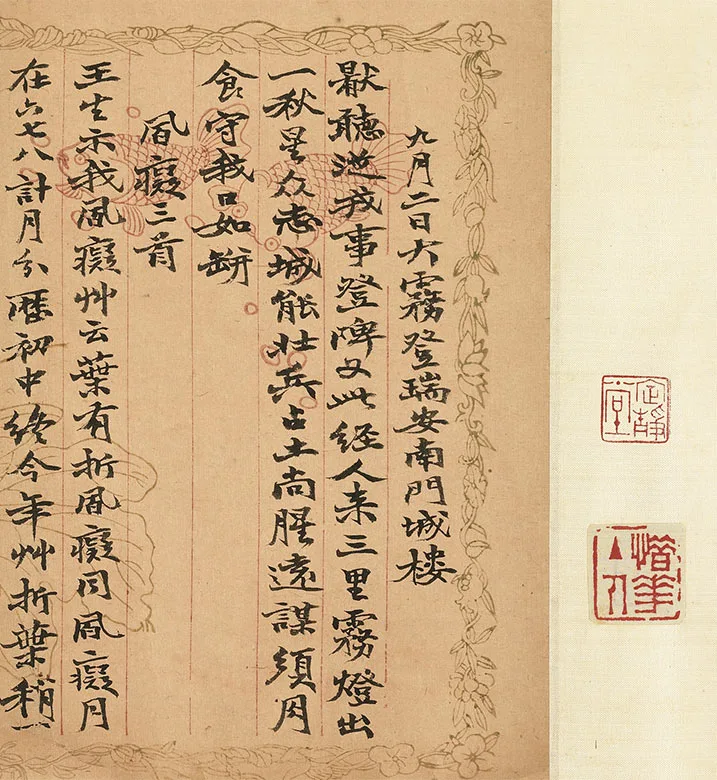 九月二日大霧登瑞安南門城楼
厭聽巡我事登陴又此經人来三里霧燈出
一秋星众志城能壮兵占土尚腥遠謀須肉
食守我口如缾
風癡三首
王生示我風癡艸云葉有折風癡同風癡月
在六七八計月分曆初中終今年艸折葉稍一
定靜堂